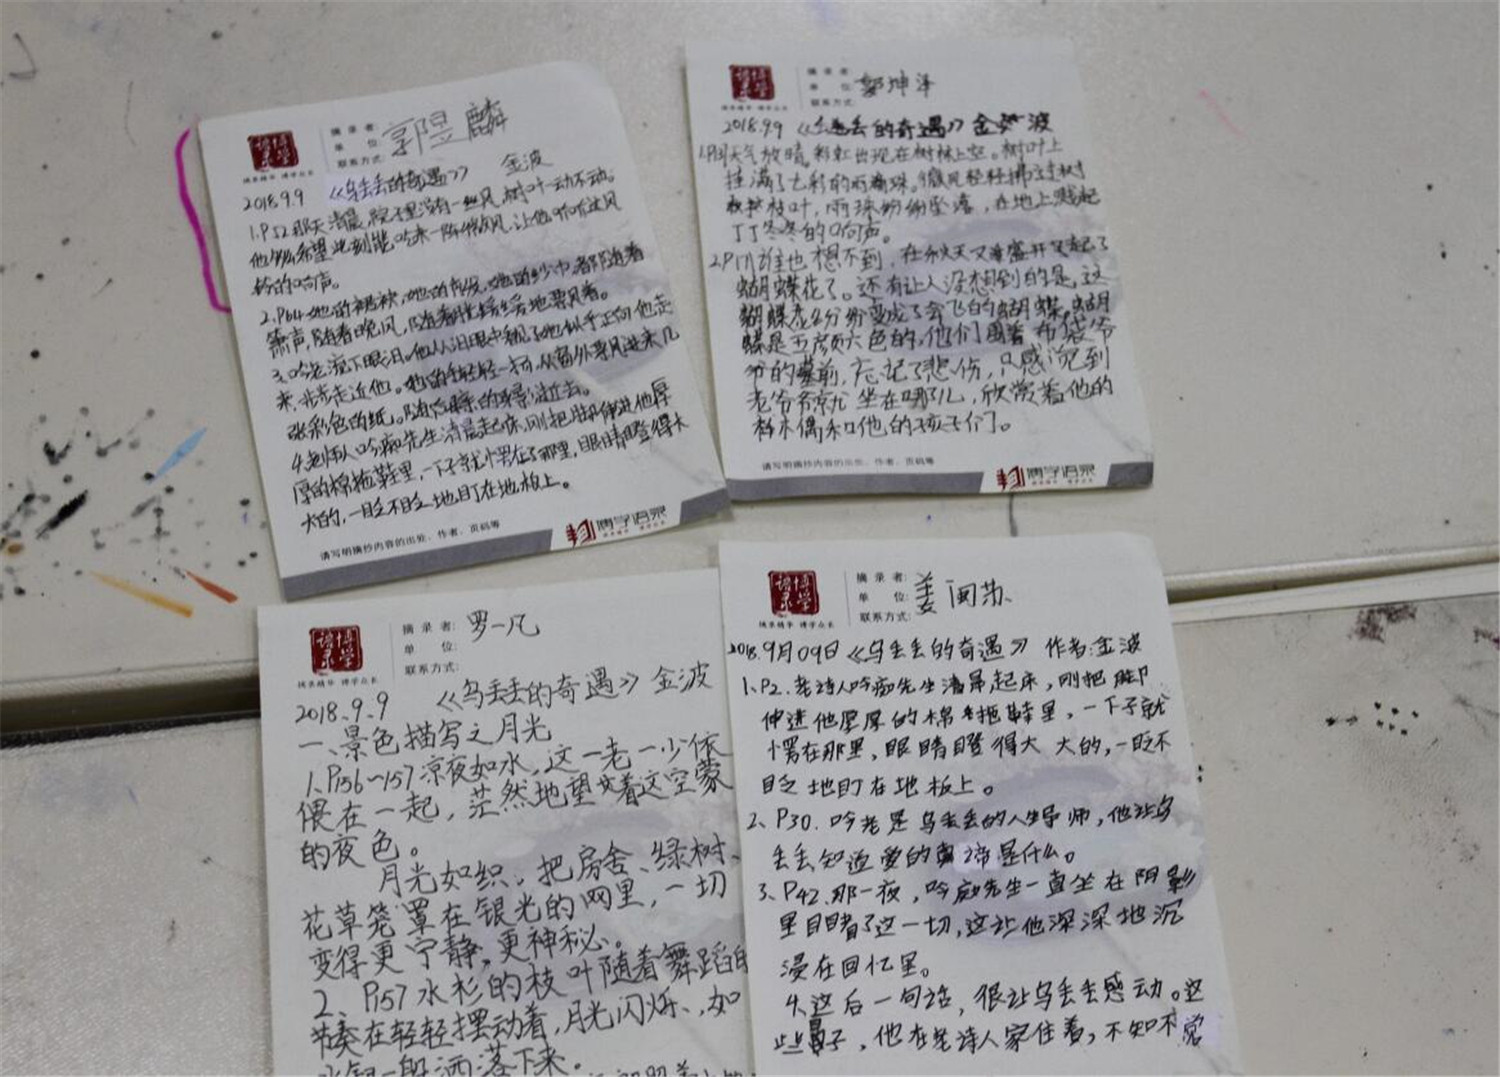 博学语录
摘录精华 博学众长
摘 录 者:
单 位:
联系方式:
郭昱麟
2018.9.9 《乌丢丢的奇遇》 金波
1.P52那天清晨,院子里没有一丝风,树叶一动不动。
他多么希望此刻能吹来一阵微风,让他听听这风
铃的响声。
2.P64她的裙袂,她的秀发,她的纱巾,都随着
箫声,随着晚风,随着月光缓缓地飘着。
3.吟老流下眼泪,他从泪眼中看见了她似乎正向他走
来,一步步走近他。她的手轻轻一招,从窗外飘进来几
张彩色的纸。
4.老诗人吟痴先生清晨起床,刚把脚伸进他厚
厚的棉拖鞋里,一下子就愣在了那里,眼睛瞪得大
大的,一眨不眨地盯在地板上。
请写明摘抄内容的出处、作者、页码等
博学语录
博学语录
摘 录 者:
单 位:
联系方式:
郭坤泽
2018.9.9 《乌丢丢的奇遇》 金波
天气放晴,彩虹出现在树林上空。树叶上
挂满了七彩的雨珠。微风轻轻拂过树
枝叶,雨珠纷纷坠落,在地上溅起
丁丁冬冬的响声。
2.P111谁也想不到,在秋天又盛开起了
蝴蝶花了。还有让人没想到的是,这
蝴蝶花纷纷变成了会飞的蝴蝶。蝴
蝶是五颜六色的,他们围着布袋爷
爷的墓前,忘记了悲伤,只感觉到
老爷爷就坐在那儿,欣赏着他的
木偶和他的孩子们。
请写明摘抄内容的出处、作者、页码等
博学语录
博学语录
摘录精华 博学众长
摘 录 者:
单 位:
联系方式:
罗一凡
2018.9.9 《乌丢丢的奇遇》金波
一、景色描写之月光
1.P156~157凉夜如水,这一老一少依
偎在一起,茫然地望着这空蒙
的夜色。
月光如织,把房舍、绿树、
花草笼罩在银光的网里,一切
变得更宁静,更神秘。
2、P157水杉的枝叶随着舞蹈的
节奏在轻轻摆动着,月光闪烁,如
水银一般洒落下来。
博学语录
摘录精华 博学众长
摘 录 者:
单 位:
联系方式:
姜闵苏
2018.9月09日《乌丢丢的奇遇》 作者:金波
1、P2.老诗人吟痴先生清晨起床,刚把脚
伸进他厚厚的棉拖鞋里,一下子就
愣在那里,眼睛瞪得大大的,一眨不
眨地盯在地板上。
2、P30.吟老是乌丢丢的人生导师,他让乌
丢丢知道爱的真谛是什么。
3、P42.那一夜,吟痴先生一直坐在阴影
里目睹了这一切,这让他深深地沉
浸在回忆里。
4.这后一句话,很让乌丢丢感动。这
些日子,他在老诗人家住着,不知不觉